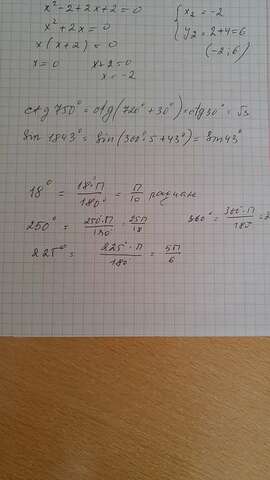 x² - 2 + 2x + 2 = 0
x² + 2x = 0
x(x + 2) = 0
x = 0 x + 2 = 0
x = -2
{ x₂ = -2
y₂ = 2 + 4 = 6
(-2; 6)
ctg 750° = ctg(720° + 30°) = ctg 30° = √3
Sin 1843° = Sin(360°·5 + 43°) = Sin 43°
18° = 18°·П/180° = П/10 радиан
250° = 250°·П/180° = 25П/18 360° = 360°·П/180
225° = 225°·П/180° = 5П/6